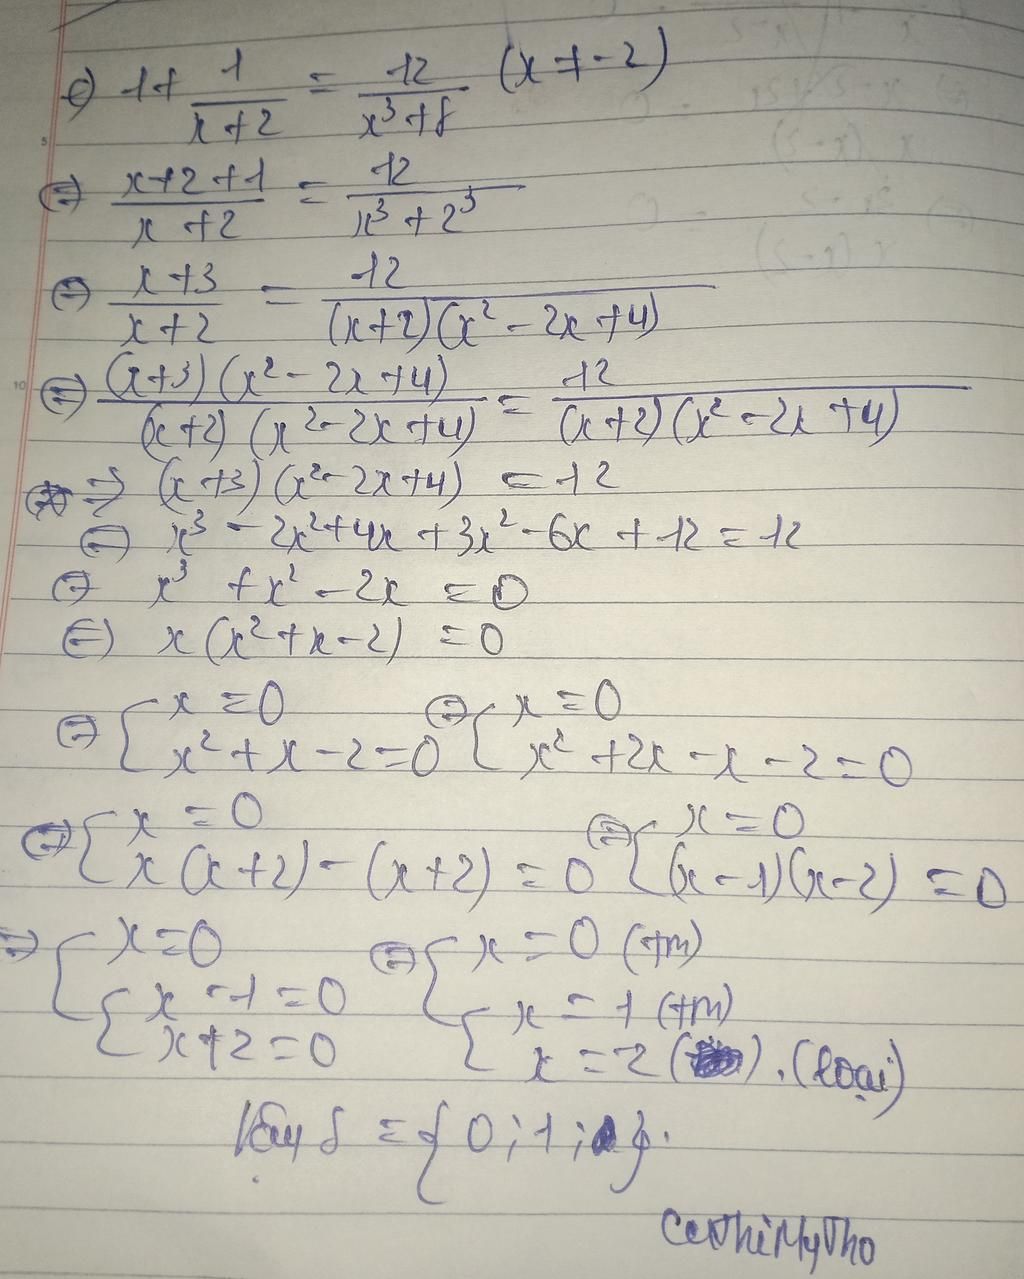 c) 1+ 1/(x+2) = 12/(x³+8) (x≠-2)
⇔ (x+2+1)/(x+2) = 12/(x³+2³)
⇔ (x+3)/(x+2) = 12/((x+2)(x²-2x+4))
⇔ ((x+3)(x²-2x+4))/((x+2)(x²-2x+4)) = 12/((x+2)(x²-2x+4))
⇒ (x+3)(x²-2x+4) = 12
⇔ x³-2x²+4x+3x²-6x+12=12
⇔ x³+x²-2x=0
⇔ x(x²+x-2)=0
⇔ { x=0 ⇔ { x=0
x²+x-2=0 x²+2x-x-2=0
⇔ { x=0 ⇔ { x=0
x(x+2)-(x+2)=0 (x-1)(x-2)=0
⇔ { x=0 ⇔ { x=0 (tm)
{ x-1=0 { x=1 (tm)
x+2=0 x=2 . (loại)
Vậy S={0;1;}.